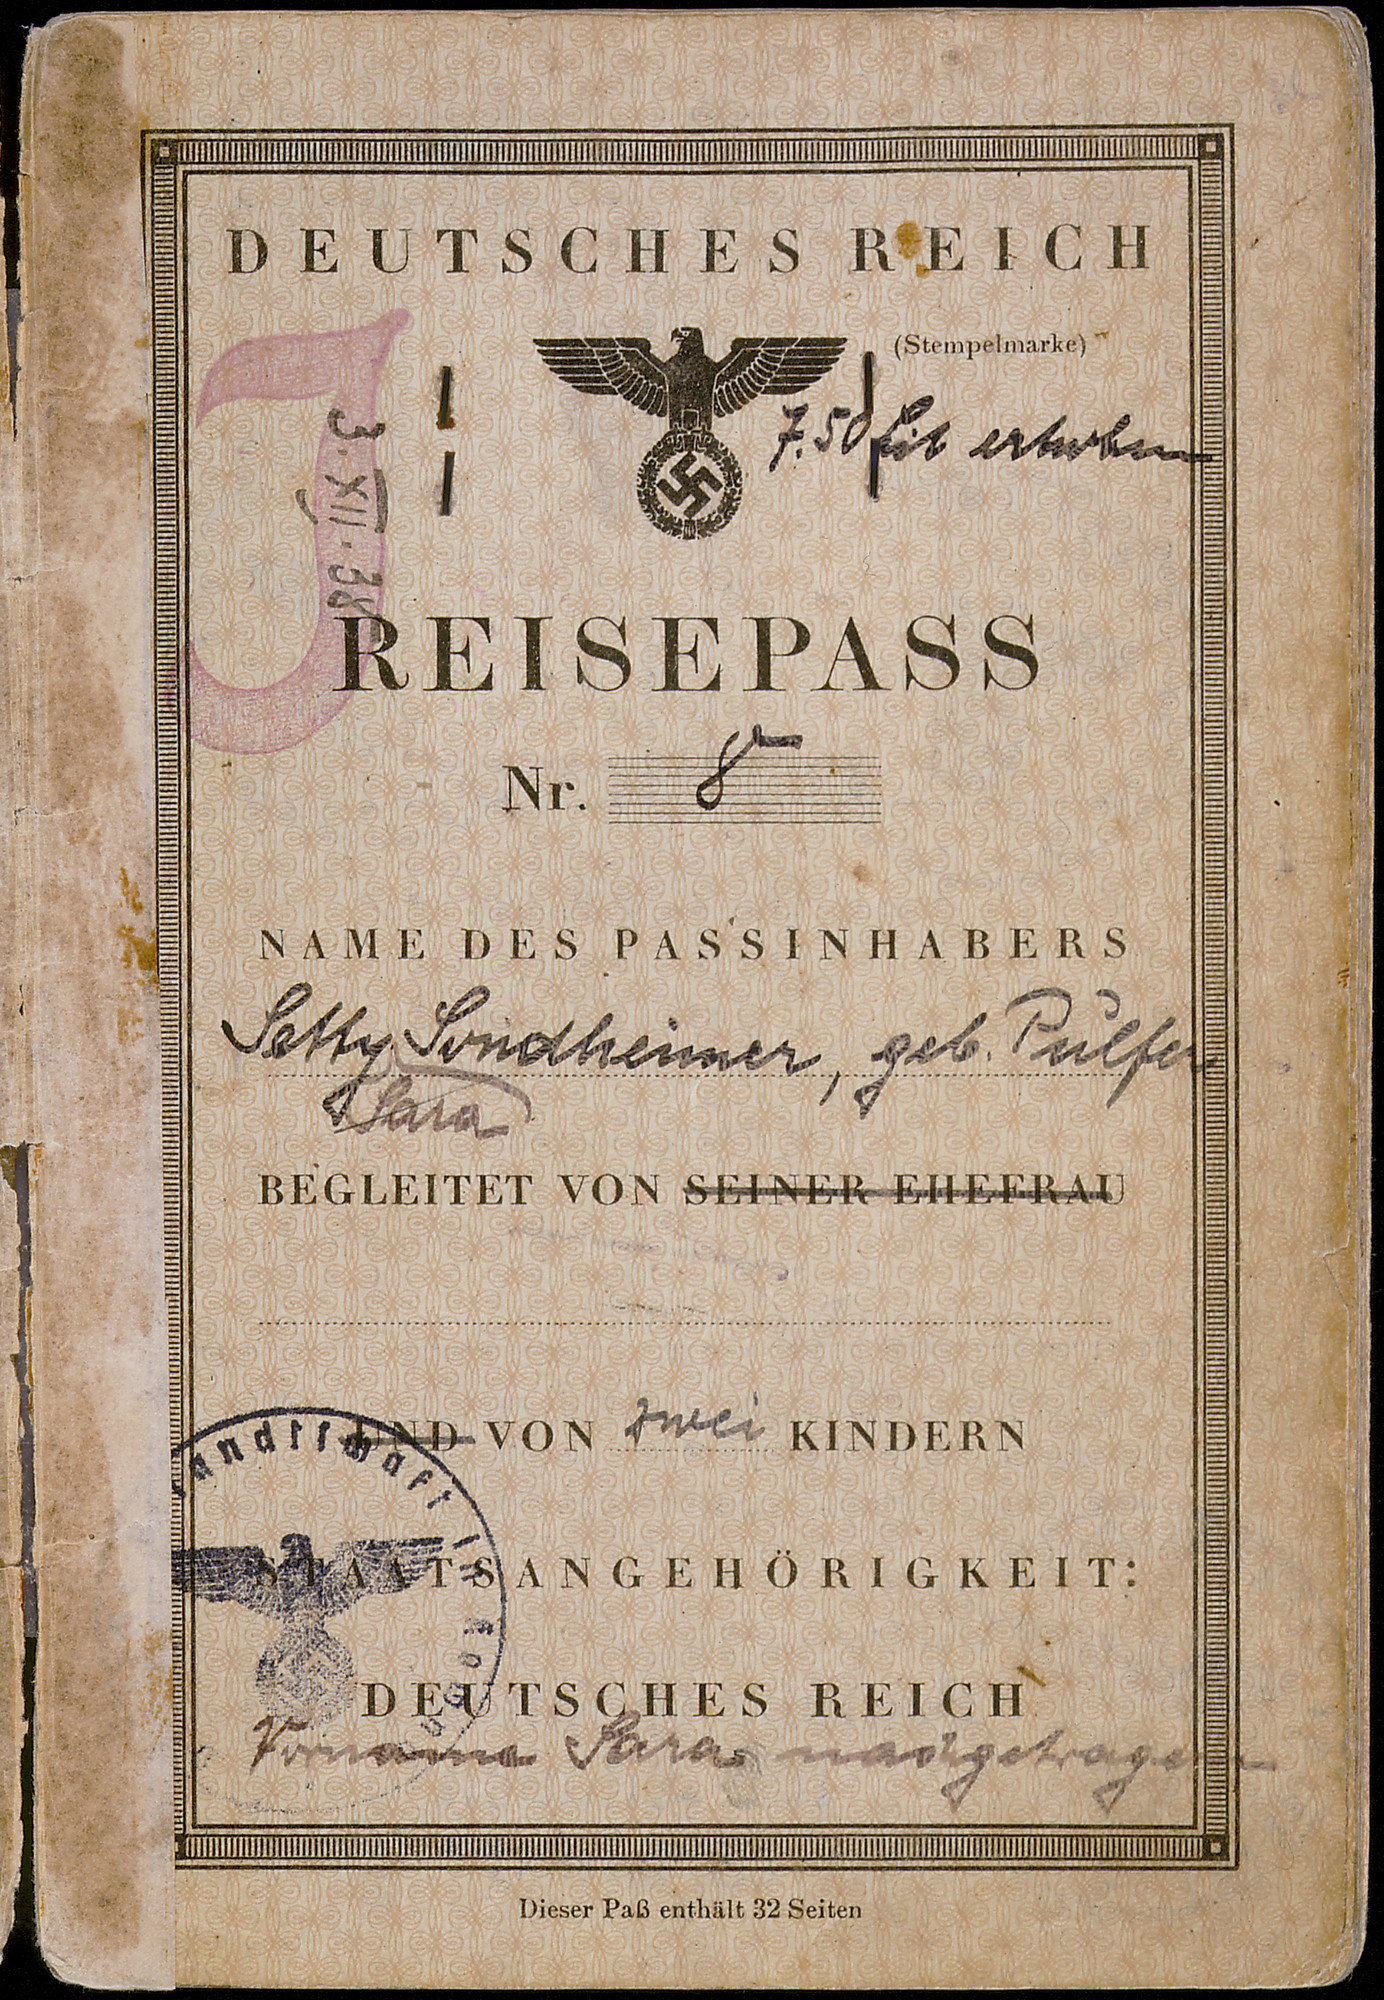 DEUTSCHES REICH
(Stempelmarke)
7.50 Lit erhoben
J
3.XII.38
REISEPASS
Nr. 8
NAME DES PASSINHABERS
Setty Sondheimer, geb. Pülfer
Sara
BEGLEITET VON SEINER EHEFRAU
UND VON zwei KINDERN
STAATSANGEHÖRIGKEIT:
DEUTSCHES REICH
Vorname Sara nachgetragen
Dieser Paß enthält 32 Seiten